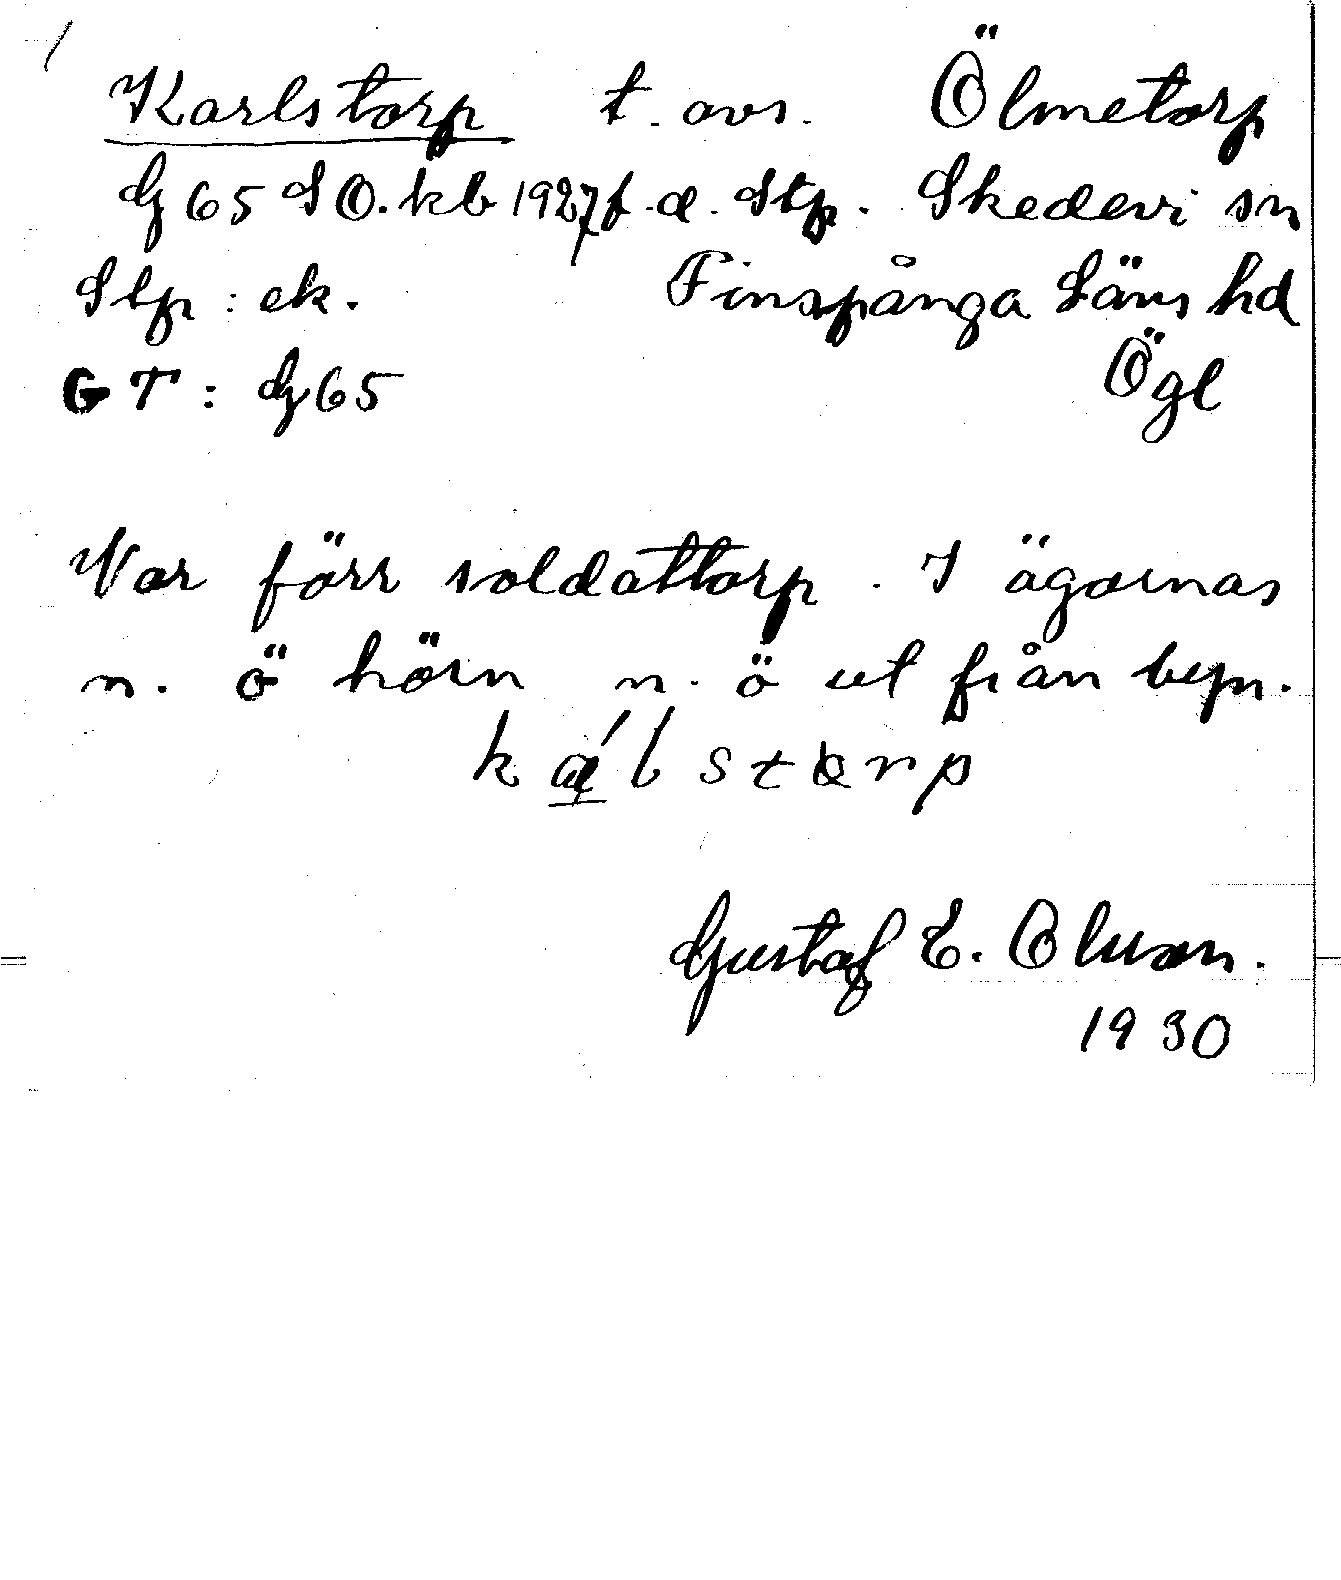 Karlstorp t. avs. Ölmetorp
G 65 S O. kb 1927 f.d. Stp. Skedevi sn
Stp : ek. Finspånga Läns hd
GT : G 65 Ögl
Var förr soldattorp. I ägornas
n. ö hörn n. ö ut från byn.
Gustaf E. Olsson.
1930